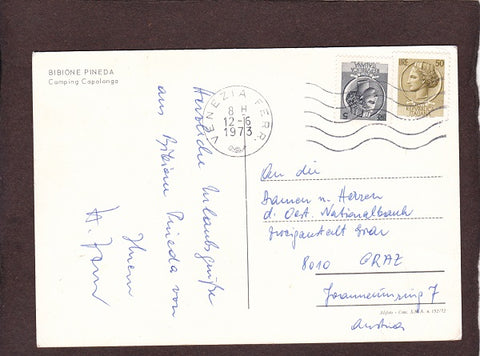 BIBIONE PINEDA
Camping Capalonga
Herzliche Urlaubsgrüße
aus Bibione Pineda von
Ihrem
H.
VENEZIA FERR.
8 H
12-6
1973
5
LIRE 50
An die
Damen u. Herren
d. Oest. Nationalbank
Zweiganstalt Graz
8010 GRAZ
Joanneumring 7
Austria